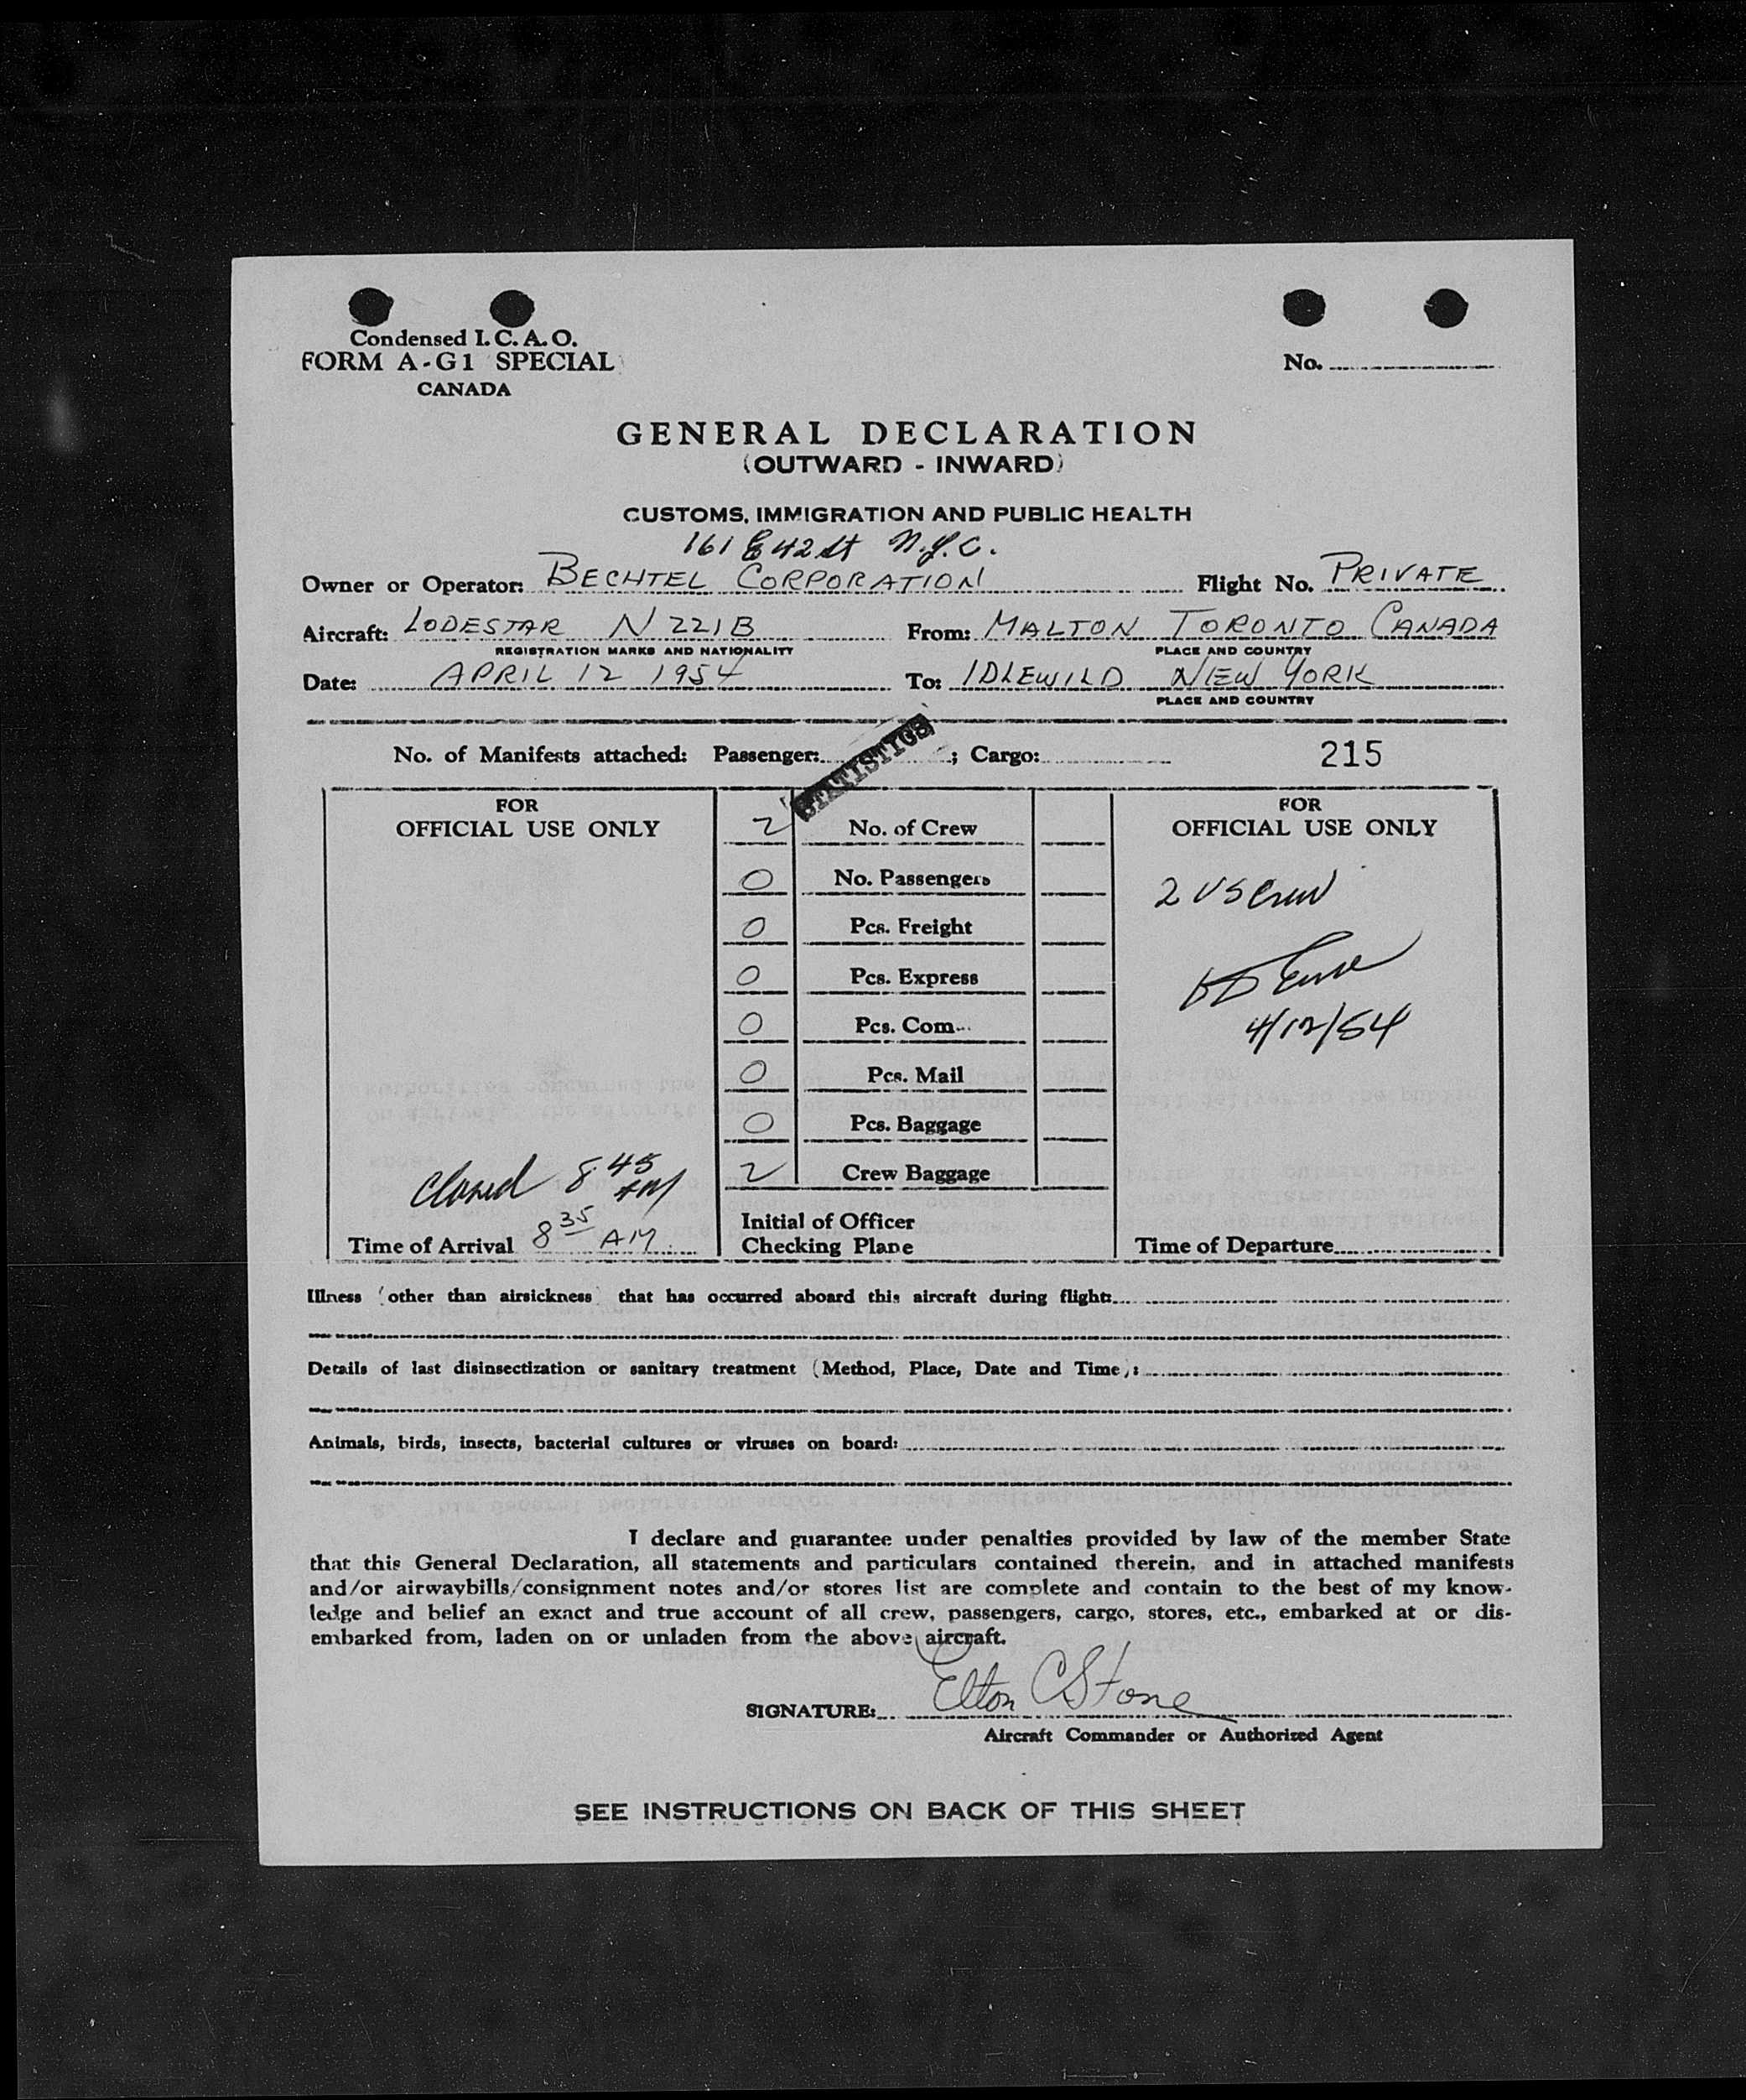 Condensed I. C. A. O.
FORM A-G1 SPECIAL
CANADA
No.
GENERAL DECLARATION
(OUTWARD - INWARD)
CUSTOMS, IMMIGRATION AND PUBLIC HEALTH
161 E 42 St N.Y.C.
Owner or Operator: BECHTEL CORPORATION Flight No. PRIVATE
Aircraft: LODESTAR N221B From: MALTON TORONTO CANADA
REGISTRATION MARKS AND NATIONALITY PLACE AND COUNTRY
Date: APRIL 12 1954 To: IDLEWILD NEW YORK
PLACE AND COUNTRY
STATISTICS
No. of Manifests attached: Passenger: ; Cargo: 215
FOR
OFFICIAL USE ONLY
2 No. of Crew
0 No. Passengers
0 Pcs. Freight
0 Pcs. Express
0 Pcs. Com
0 Pcs. Mail
0 Pcs. Baggage
2 Crew Baggage
Initial of Officer
Checking Plane
Closed 8:45 AM
Time of Arrival 8 35 AM
FOR
OFFICIAL USE ONLY
2 US Crew
4/12/54
Time of Departure
Illness (other than airsickness) that has occurred aboard this aircraft during flight:
Details of last disinsectization or sanitary treatment (Method, Place, Date and Time):
Animals, birds, insects, bacterial cultures or viruses on board:
I declare and guarantee under penalties provided by law of the member State
that this General Declaration, all statements and particulars contained therein, and in attached manifests
and/or airwaybills/consignment notes and/or stores list are complete and contain to the best of my know-
ledge and belief an exact and true account of all crew, passengers, cargo, stores, etc., embarked at or dis-
embarked from, laden on or unladen from the above aircraft.
SIGNATURE: Elton C Stone
Aircraft Commander or Authorized Agent
SEE INSTRUCTIONS ON BACK OF THIS SHEET